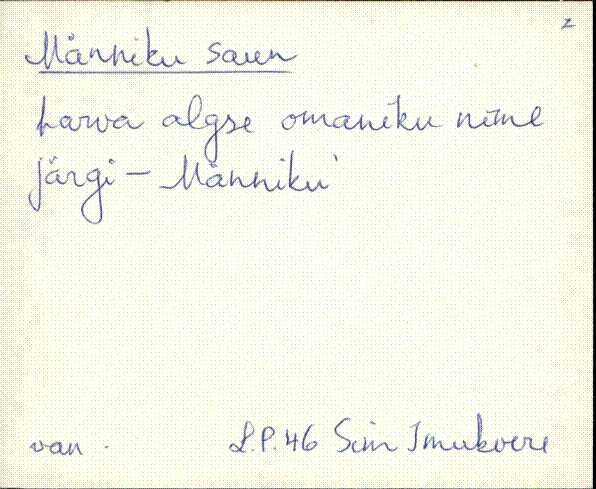 2
Männiku saun
harva algse omaniku nime
järgi – Männiku
van. L.P. 46 Sim Imukvere